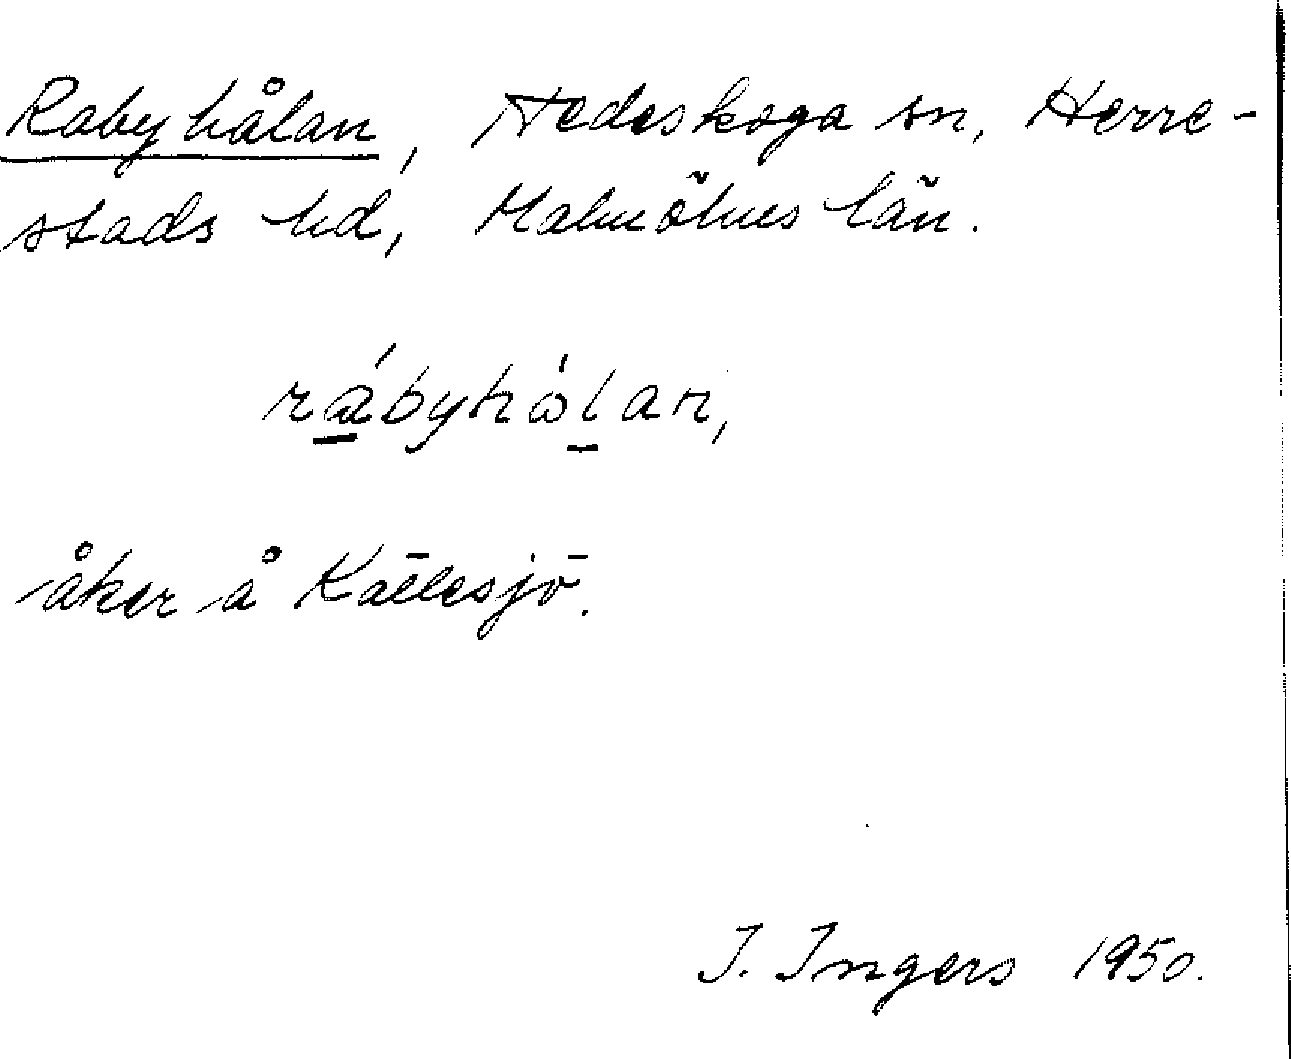 Rabyhålan, Hedeskoga sn, Herre-
stads hd, Malmöhus län.
rábyhòlan,
åker å Källesjö.
I. Ingers 1950.